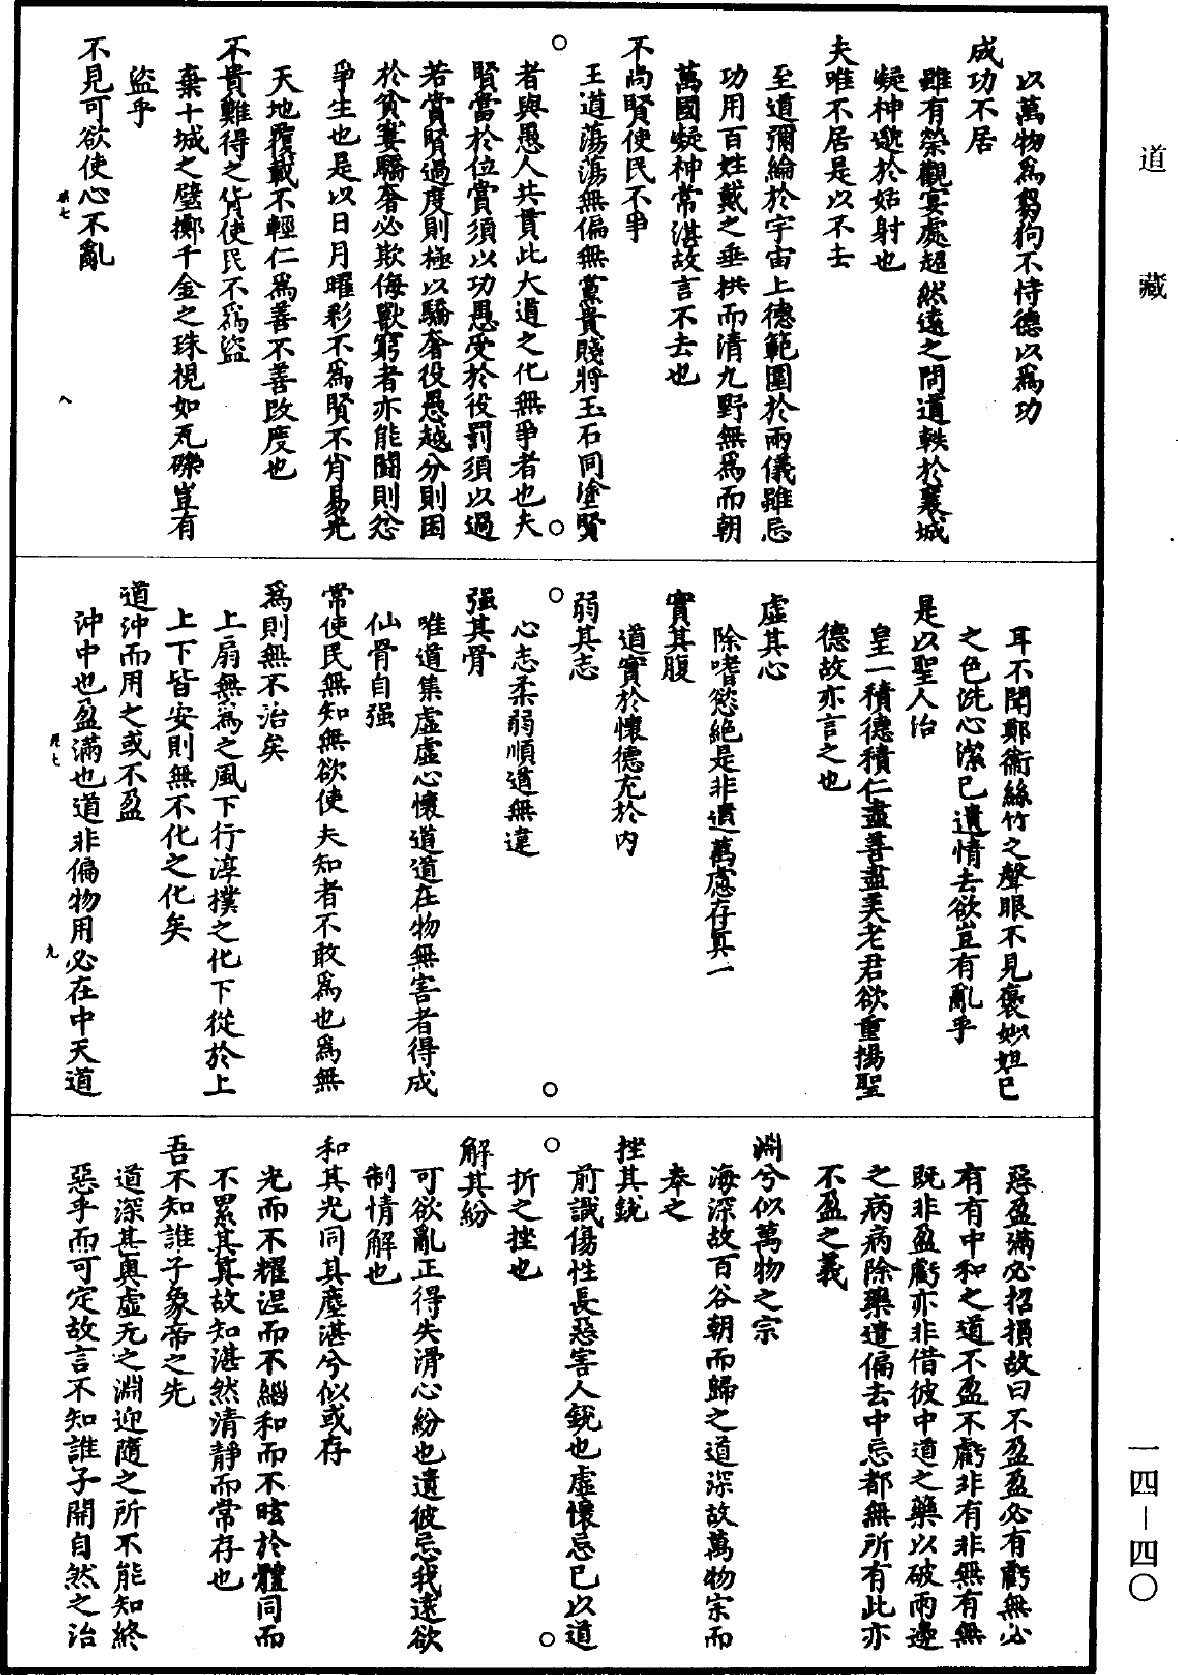 道藏
以萬物爲芻狗不恃德以爲功
成功不居
雖有榮觀宴處超然遠之問道軼於襄城
凝神邈於姑射也
夫唯不居是以不去
至道彌綸於宇宙上德範圍於兩儀雖忌
功用百姓戴之垂拱而清九野無爲而朝
萬國凝神常湛故言不去也
不尚賢使民不爭
王道蕩蕩無偏無黨貴賤將玉石同塗賢
者與愚人共貫此大道之化無爭者也夫
賢當於位賞須以功愚受於役罰須以過
若賞賢過度則極以驕奢役愚越分則困
於貧寠驕奢必欺侮獸窮者亦能鬪則忿
爭生也是以日月曜彩不爲賢不肖易光
天地覆載不輕仁爲善不善改度也
不貴難得之貨使民不爲盜
棄十城之璧擲千金之珠視如瓦礫豈有
盜乎
不見可欲使心不亂
八
耳不聞鄭衞絲竹之聲眼不見褒妙妲己
之色洗心潔己遺情去欲豈有亂乎
是以聖人治
皇一積德積仁盡善盡美老君欲重揚聖
德故亦言之也
虛其心
除嗜慾絕是非遺萬慮存真一
實其腹
道實於懷德充於內
弱其志
心志柔弱順道無違
强其骨
唯道集虛虛心懷道道在物無害者得成
仙骨自强
常使民無知無欲使夫知者不敢爲也爲無
爲則無不治矣
上扇無爲之風下行淳撲之化下從於上
上下皆安則無不化之化矣
道沖而用之或不盈
沖中也盈滿也道非偏物用必在中天道
九
惡盈滿必招損故曰不盈盈必有虧無必
有有中和之道不盈不虧非有非無有無
既非盈虧亦非借彼中道之藥以破兩邊
之病病除藥遣偏去中忌都無所有此亦
不盈之義
淵兮似萬物之宗
海深故百谷朝而歸之道深故萬物宗而
奉之
挫其銳
前識傷性長惡害人銳也虛懷忘己以道
折之挫也
解其紛
可欲亂正得失滑心紛也遺彼忌我遠欲
制情解也
和其光同其塵湛兮似或存
光而不耀涅而不緇和而不眩於體同而
不累其真故知湛然清靜而常存也
吾不知誰子象帝之先
道深甚奧虛无之淵迎隨之所不能知終
惡乎而可定故言不知誰子開自然之治
一四—四〇